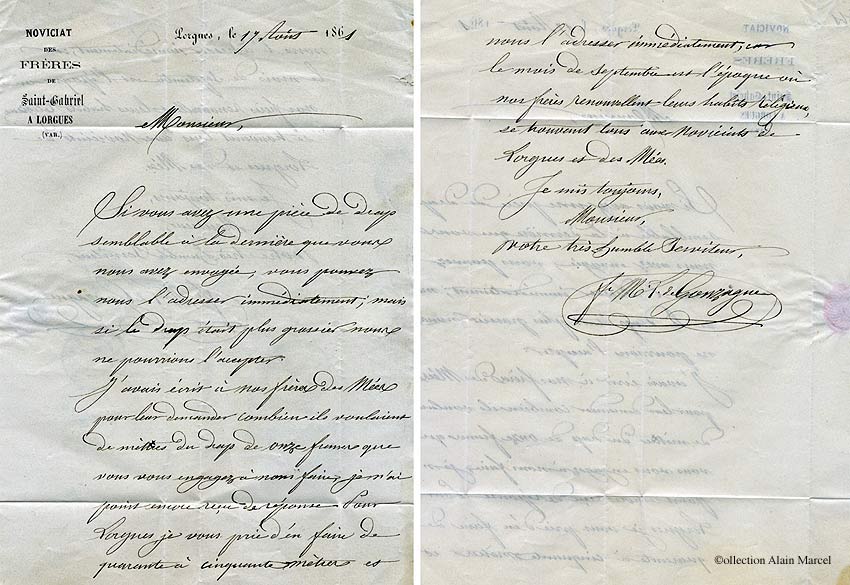 NOVICIAT
DES
FRÈRES
DE
Saint-Gabriel
A LORGUES
(VAR.)
Lorgues, le 17 Août 1861
Monsieur,
Si vous avez une pièce de drap
semblable à la dernière que vous
nous avez envoyée, vous pouvez
nous l'adresser immédiatement; mais
si le drap était plus grossier nous
ne pourrions l'accepter.
J'avais écrit à nos frères des Mées
pour leur demander combien ils voulaient
de mètres du drap de onze francs que
vous vous engagez à nous faire, je n'ai
point encore reçu de réponse. Pour
Lorgues, je vous prie d'en faire de
quarante à cinquante mètres et
nous l'adresser immédiatement, car
le mois de septembre est l'époque où
nos frères renouvellent leurs habits religieux,
se trouvent tous aux Noviciats de
Lorgues et des Mées.
Je suis toujours,
Monsieur,
votre très humble Serviteur,
f. M. de Gonzague
©ollection Alain Marcel